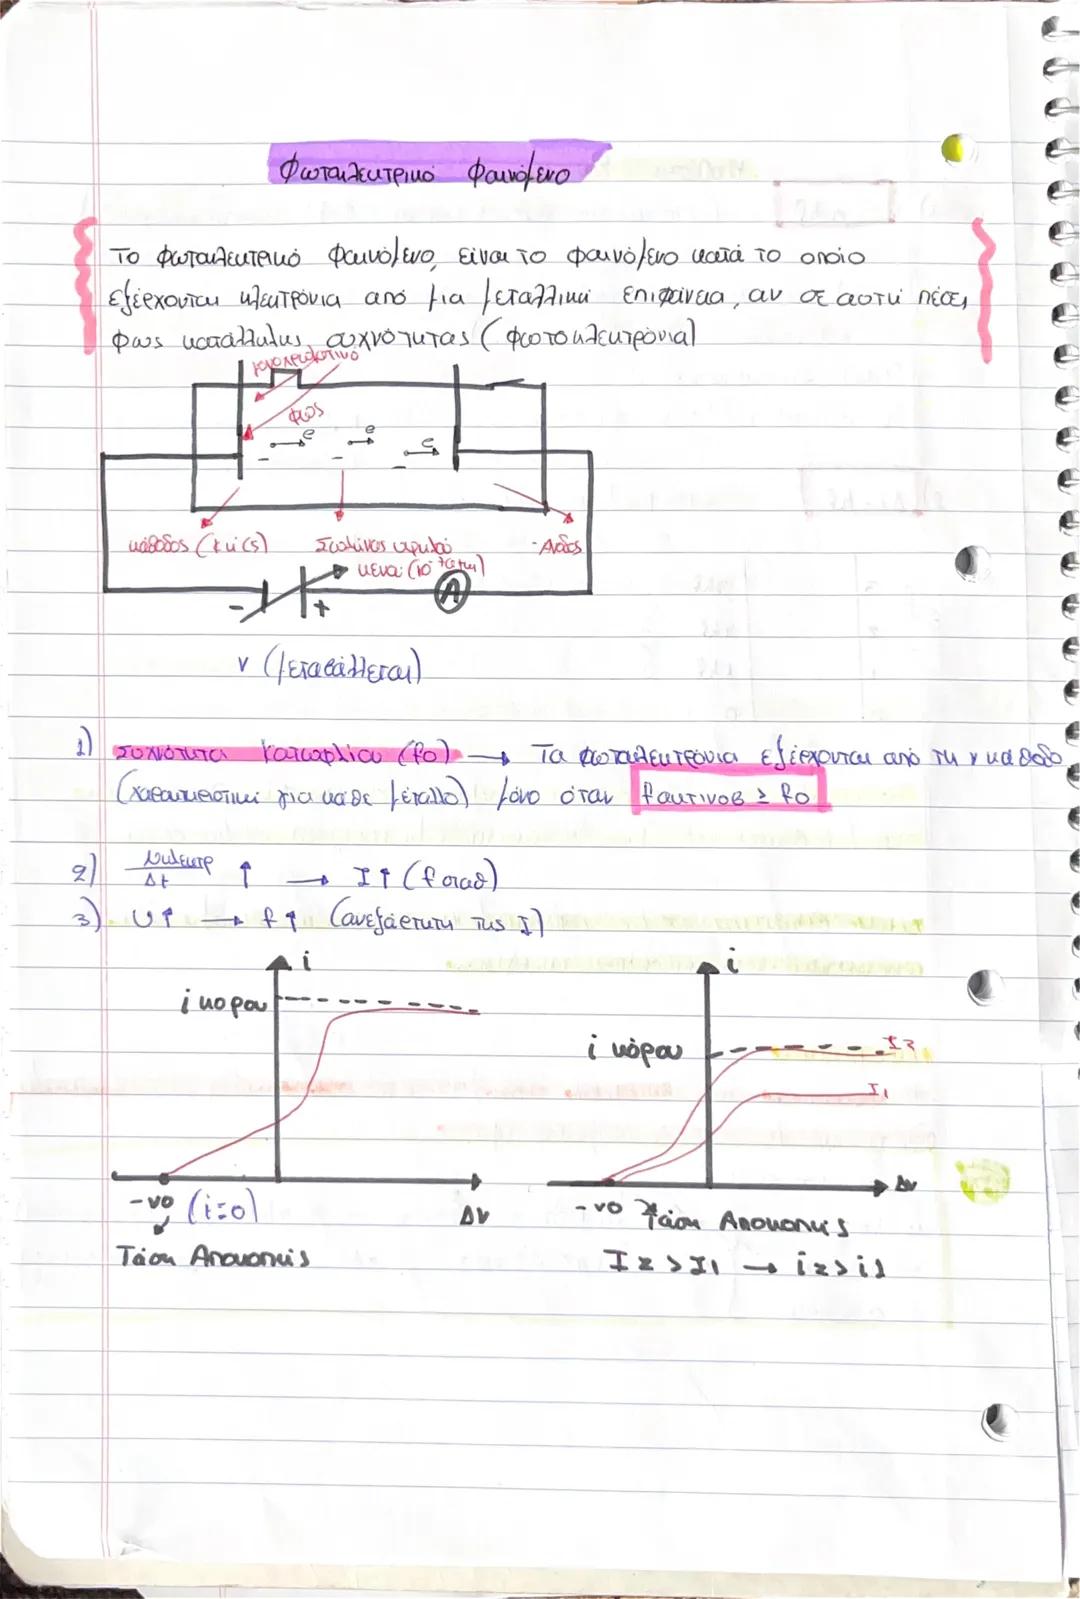 Φωτοηλεκτρικό Φαινόμενο
Το Φωτοηλεκτρικό Φαινόμενο, είναι το φαινόμενο κατά το οποίο
εξέρχονται ηλεκτρόνια από μια μεταλλική επιφάνεια, αν σε αυτή πέσει
φως κατάλληλης συχνότητας (φωτοηλεκτρόνια)
μονοχρωματικό
φως
e e e
κάθοδος (K ή Cs) Σωλήνας υψηλού - Άνοδος
κενού
- + A
V (μεταβάλλεται)
1) Συχνότητα Κατωφλίου (fo) → Τα φωτοηλεκτρόνια εξέρχονται από τη κάθοδο
(χαρακτηριστική για κάθε μέταλλο) μόνο όταν fακτινοβ ≥ fo
2) Νηλεκτρ/Δt ↑ → I↑ (f σταθ)
3) U↑ → f↑ (ανεξάρτητη της I)
i i
i κορου
i κόρου I2
I1
-vo (i=0) ΔV -vo Τάση Αποκοπής ΔV
Τάση Αποκοπής I2 > I1 → i2 > i1